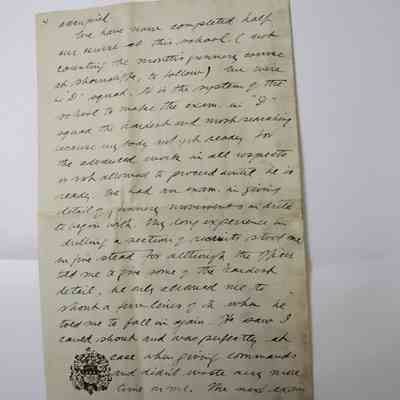 4
occupied.
We have now completed half
our course at this school. (not
counting the month's gunnery course
at Shorncliffe, to follow) We were
in "D" squad. It is the system of the
school to make the exam. in "D"
squad the hardest and most searching
because any body not yet ready for
the advanced work in all respects
is not allowed to proceed until he is
ready. We had an exam. in giving
detail of gunnery movements in drill
to begin with. My long experience in
drilling a section of recruits, stood me
in give stead for although the Officer
told me to give some of the hardest
detail, he only allowed me to
shout a few lines of it when he
told me to fall in again. He saw I
could shout and was perfectly at
ease when giving commands
and didn't waste any more
time on me. The next exam